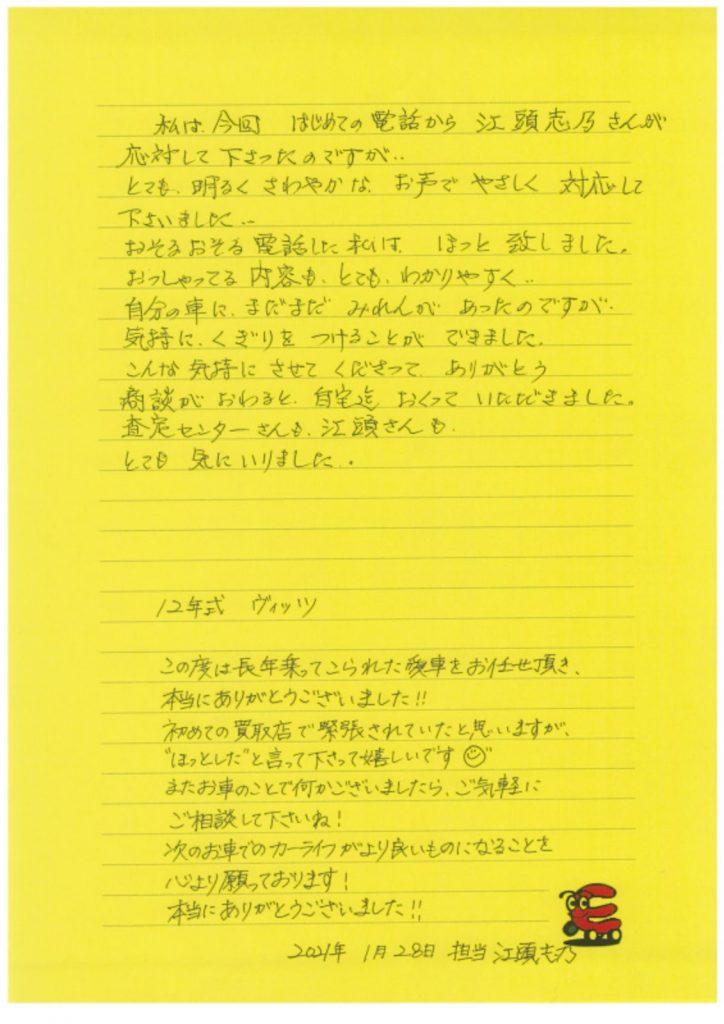 私は、今回 はじめての電話から 江頭志乃さんが
応対して下さったのですが..
とても、明るく さわやかな、お声で やさしく 対応して
下さいました..
おそるおそる電話した私は、ほっと致しました。
おっしゃってる内容も、とても、わかりやすく..
自分の車に、まだまだ みれんが あったのですが、
気持に、くぎりを つけることが できました。
こんな気持に させて くださって、ありがとう
商談が おわると、自宅迄 おくって いただきました。
査定センターさんも、江頭さんも、
とても 気にいりました.。
12年式 ヴィッツ
この度は長年乗ってこられた愛車をお任せ頂き、
本当にありがとうございました!!
初めての買取店で緊張されていたと思いますが、
"ほっとした"と言って下さって嬉しいです☺"
またお車のことで何かございましたら、ご気軽に
ご相談して下さいね!
次のお車でのカーライフがより良いものになることを
心より願っております!
本当にありがとうございました!!
2021年 1月28日 担当 江頭志乃